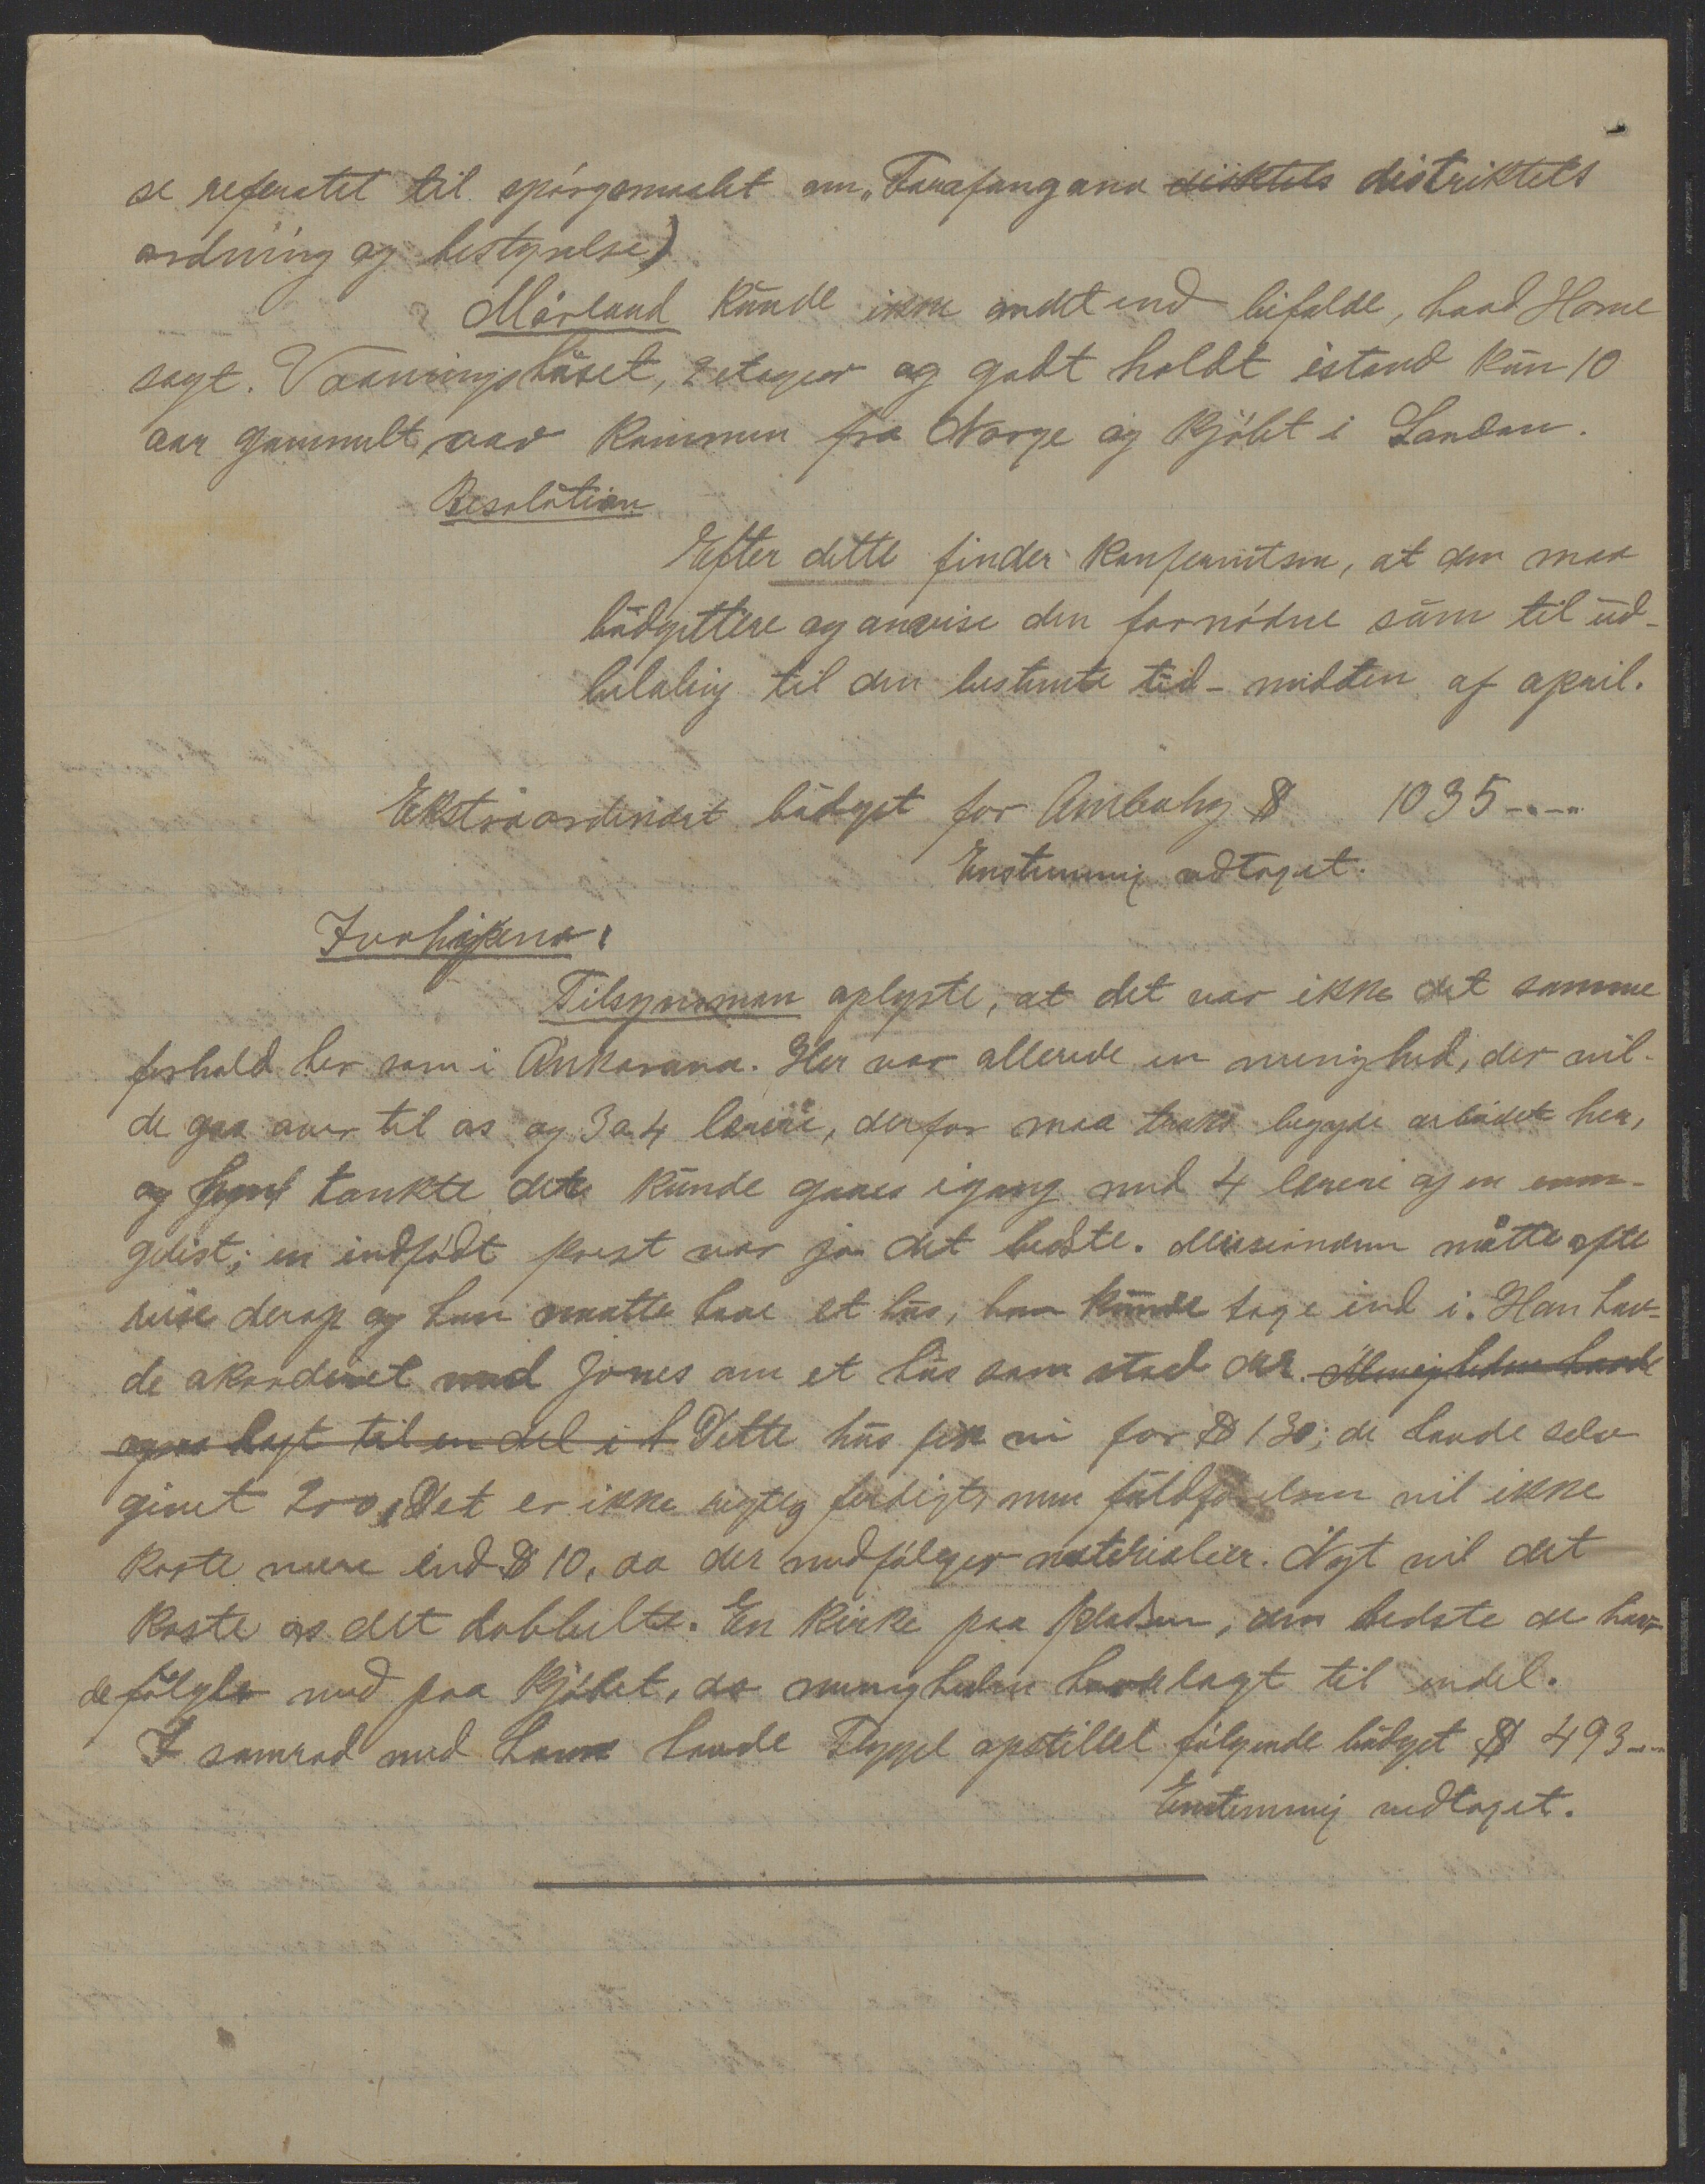 se referatet til spørgsmaalet om „Farafangana distriktets distriktets
ordning og bestyrelse)
Mørland kunde ikke andet end bifalde, hvad Horne
sagt. Vaaningshuset, 2 etager og godt holdt istand kun 10
aar gammelt, var kommen fra Norge og kjøbt i London.
Resolution
Efter dette finder konferentsen, at den maa
budgettere og anvise den fornødne sum til ud-
betaling til den bestemte tid - midten af april.
Ekstraordinært budget for Ambohy $ 1035-.--
Enstemmig vedtaget.
Ivohipena:
Tilsynsman oplyste, at det var ikke det samme
forhold her som i Ankarana. Her var allerede en menighed, der vil-
de gaa over til os og 3 a 4 lærere, derfor maa straks begynde arbeidet her,
og tænkte det kunde gaaes igang med 4 lærere og en evan-
gelist; en indfødt prest var jo det bedste. Missionæren måtte ofte
reise derop og han maatte have et hus, han kunde tage ind i. Han hav-
de akorderet med Jones om et hus som stod der. Menigheden havde
ogsaa lagt til en del i d Dette hus fik vi for $ 130; de havde selv
givet 200, Det er ikke rigtig ferdigt, men fuldførelsen vil ikke
koste mere end $ 10, da der medfølger materialier. Nyt vil det
koste os det dobbelte. En kirke paa pladsen, den bedste de hav-
de følgte med paa kjøbet, da menigheden havde lagt til endel.
I samraad med ham havde Flygel opstillet følgende budget $ 493--
Enstemmig vedtaget.